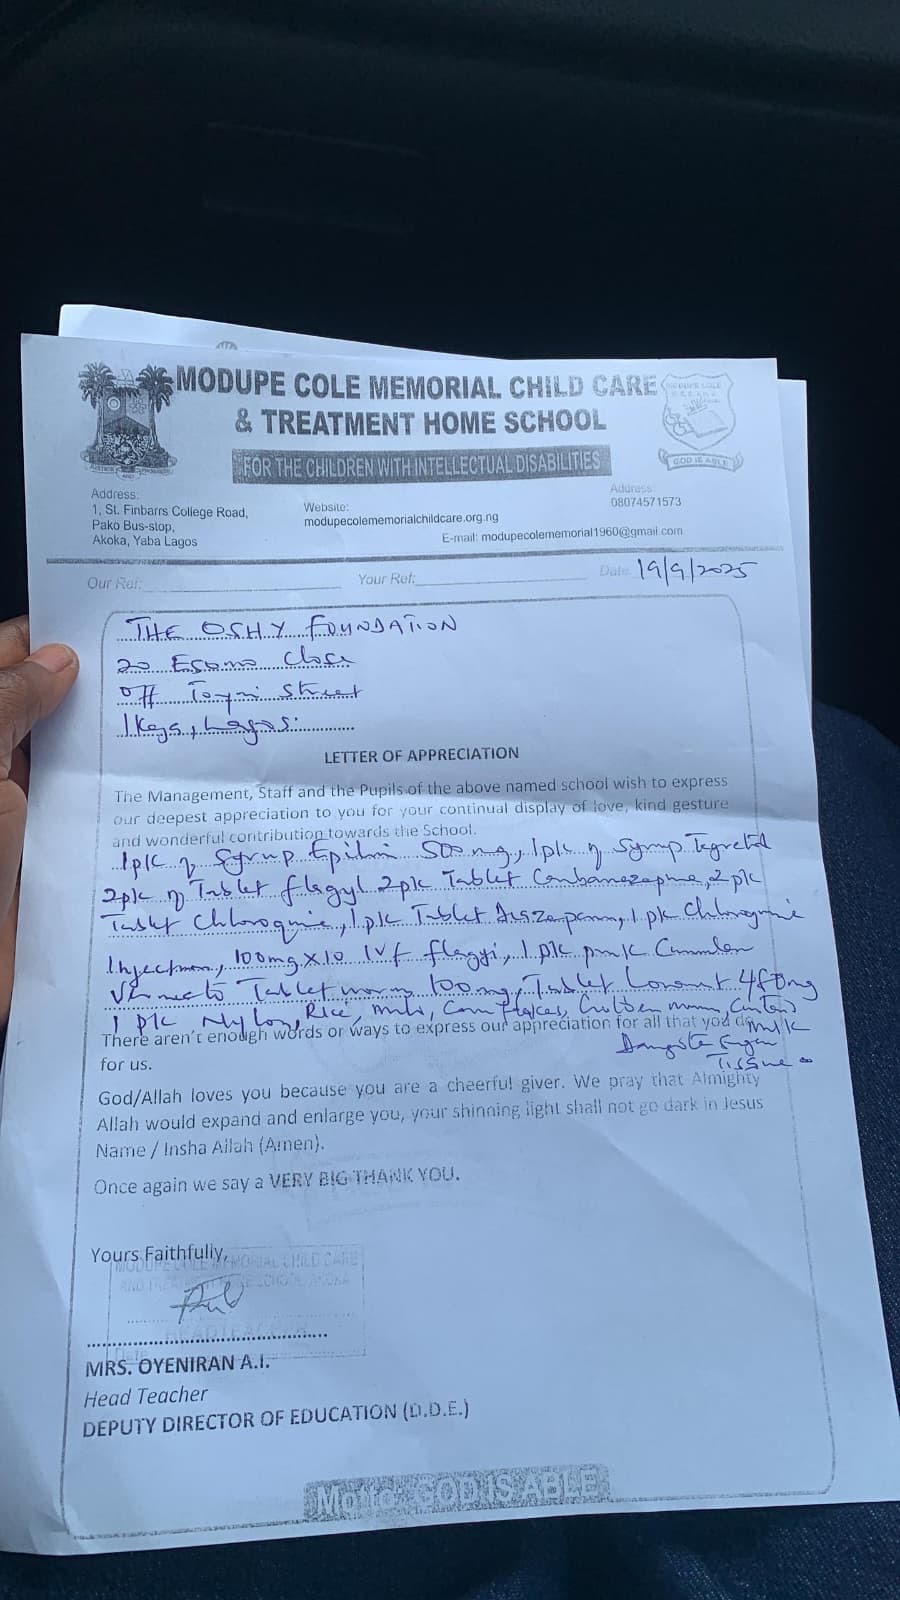 MODUPE COLE MEMORIAL CHILD CARE
& TREATMENT HOME SCHOOL
FOR THE CHILDREN WITH INTELLECTUAL DISABILITIES
MODUPE COLE
GOD IS ABLE
Address:
1, St. Finbarrs College Road,
Pako Bus-stop,
Akoka, Yaba Lagos
Website:
modupecolememorialchildcare.org.ng
Address
08074571573
E-mail: modupecolememorial1960@gmail.com
Our Ref: Your Ref: Date: 19/9/2025
THE OSHY FOUNDATION
20 Close
Off Street
Ikeja, Lagos.
LETTER OF APPRECIATION
The Management, Staff and the Pupils of the above named school wish to express
our deepest appreciation to you for your continual display of love, kind gesture
and wonderful contribution towards the School.
1pk of Syrup Epilim 500mg, 1pk of Syrup Tegretol
2pk of Tablet flagyl 2pk Tablet, 2pk
Tablet, 1pk Tablet, 1 pk
Injection, 100mg x 10 IVf, 1 pk
Tablet 100mg, Tablet 480mg
1 pk Nylon, Rice,
There aren't enough words or ways to express our appreciation for all that you do milk
for us.
Tissue
God/Allah loves you because you are a cheerful giver. We pray that Almighty
Allah would expand and enlarge you, your shinning light shall not go dark in Jesus
Name / Insha Allah (Amen).
Once again we say a VERY BIG THANK YOU.
Yours Faithfully,
MODUPE COLE MEMORIAL CHILD CARE
MRS. OYENIRAN A.I.
Head Teacher
DEPUTY DIRECTOR OF EDUCATION (D.D.E.)
Motto: GOD IS ABLE